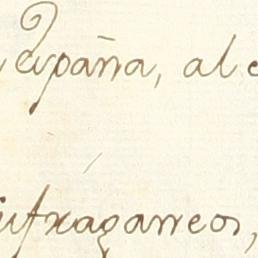 España, al
ufraganeos,